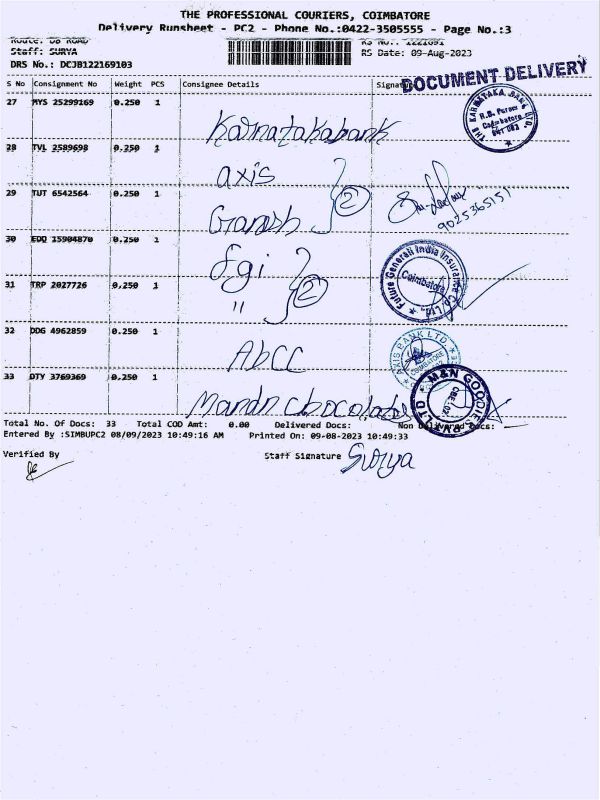 THE PROFESSIONAL COURIERS, COIMBATORE
Delivery Runsheet - PC2 - Phone No.:0422-3505555 - Page No.:3
Route: DB ROAD
RS No.: 1221691
Staff: SURYA
RS Date: 09-Aug-2023
DRS No.: DCJB122169103
DOCUMENT DELIVERY
S No Consignment No Weight PCS Consignee Details Signature
27 MYS 25299169 0.250 1
Karnatakabank
THE KARNATAKA BANK LTD.
R.S. Puram
Coimbatore
641 002
28 TVL 2589698 0.250 1
axis
29 TUT 6542564 0.250 1
Ganesh
2
9025365151
30 EDQ 15904870 0.250 1
fgi
Future Generali India Insurance Co. Ltd.,
Coimbatore
31 TRP 2027726 0.250 1
"
2
32 DDG 4962859 0.250 1
AbCC
AXIS BANK LTD.
COIMBATORE
33 DTY 3769369 0.250 1
Mandn chocolate
M&N GOODIES PVT LTD
CBE-02
Total No. Of Docs: 33 Total COD Amt: 0.00 Delivered Docs: Non Delivered Docs:
Entered By :SIMBUPC2 08/09/2023 10:49:16 AM Printed On: 09-08-2023 10:49:33
Verified By
Staff Signature Surya